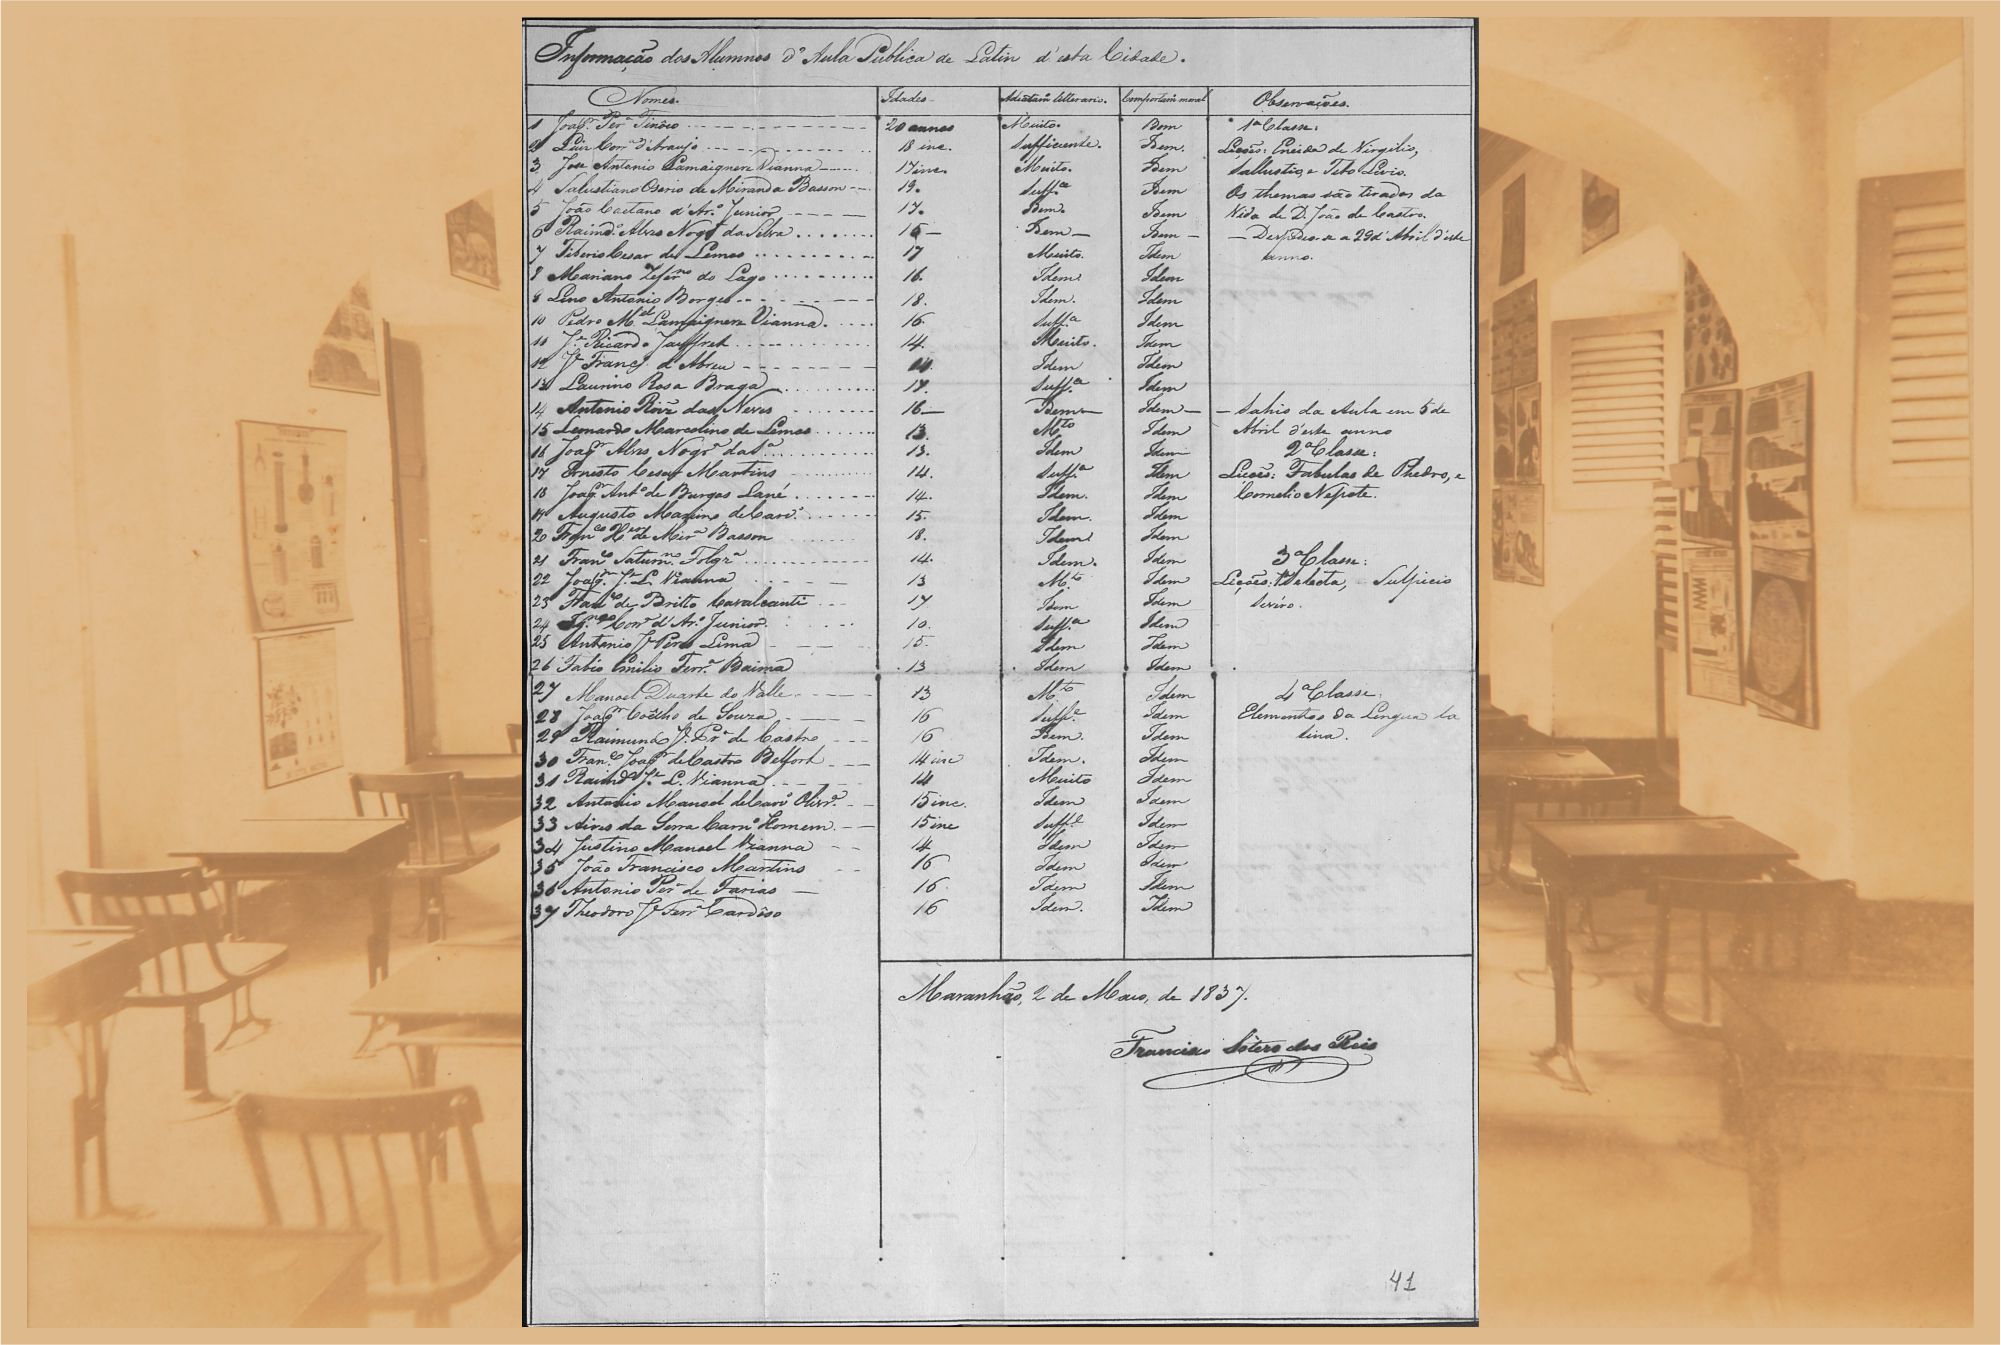 Informação dos Alumnos d'Aula Publica de Latin d'esta Cidade.
Nomes. Idades Adiatam litterario. Comportam moral Observações.
1 Joaqm. Perª Tinôco 20 annos Muito. Bom 1ª Classe:
2 Luiz Corrª d'Araujo 18 inc. Sufficiente. Idem. Lições: Eneida de Virgilio,
3 Jose Antonio Lamaignere Vianna 17 inc. Muito. Idem Sallustio, e Tito Livio.
4 Salustiano Oserio de Miranda Basson 19. Suffª Idem Os themas são tirados da
5 João Caetano d'Arº Junior 17. Idem. Idem Vida de D. João de Castro.
6 Raimdº Alves Nogrª da Silva 15 Idem Idem Despedio-se a 29 d'Abril d'este
7 Tiberio Cesar de Lemos 17 Muito. Idem anno.
8 Mariano Zefernº do Lago 16. Idem. Idem
9 Lino Antonio Borges 18. Idem. Idem
10 Pedro Mel Lamaignere Vianna. 16. Suffª Idem
11 Je. Ricardo Jauffret 14. Muito. Idem
12 Je Franco. d'Abreu Idem Idem
13 Laurino Rosa Braga 17. Suffª Idem
14 Antonio Roiz das Neves 16 Idem Idem Sahio da Aula em 5 de
15 Leonardo Marcolino de Lemos 13. Mto Idem Abril d'este anno
16 Joaqm Alves Nogrª da Sª 13. Idem Idem 2ª Classe:
17 Ernesto Cesar Martins 14. Suffª Idem Lições: Fabulas de Phedro, e
18 Joaqm. Antº de Burgos Lané 14. Idem. Idem Cornelio Nepote.
19 Augusto Maximo de Carvº 15. Idem. Idem
20 Franco de Mirª Basson 18. Idem Idem
21 Franco Saturno. Folgrª 14. Idem. Idem 3ª Classe:
22 Joaqm. Je L. Vianna 13 Mto Idem Lições: Selecta, Sulpicio
23 Franco de Britto Cavalcanti 17 Idem Idem Seviro.
24 Corrª d'Arº Junior. 10. Suffª Idem
25 Antonio Je Perª Lima 15. Idem Idem
26 Fabio Emilio Ferrª Baima 13 Idem Idem
27 Manoel Duarte do Valle 13 Mto Idem 4ª Classe.
28 Joaqm Coêlho de Souza 16 Suffª. Idem Elementos da Lingua La
29 Raimundo Je. Frª de Castro 16 Idem. Idem tina.
30 Franco. Joaqm de Castro Belfort 14 inc Idem. Idem
31 Raimdº Je. L. Vianna 14 Muito Idem
32 Antonio Manoel de Carvº Olivrª 15 inc. Idem Idem
33 Aires da Serra Carnº Homem 15 inc Suffª Idem
34 Justino Manoel Vianna 14 Idem Idem
35 João Francisco Martins 16 Idem Idem
36 Antonio Perª de Farias 16. Idem Idem
37 Theodoro Je Ferrª Cardôso 16 Idem. Idem
Maranhão, 2 de Maio, de 1837.
Francisco Sotero dos Reis
41